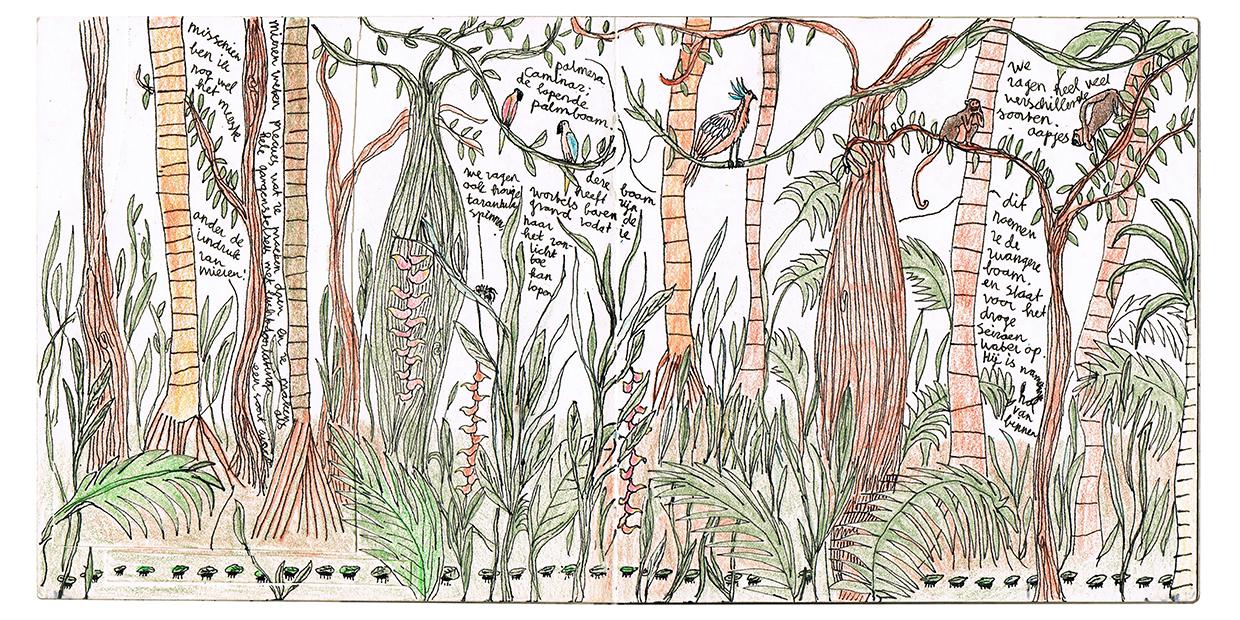 misschien
ben ik
nog wel
het meeste
onder de
indruk
van
mieren!
mieren weven
hele
palmera
caminar;
de lopende
palmboom.
we zagen
ook harige
tarantula
spinnen!
deze boom
heeft zijn
wortels boven de
grond zodat ie
naar
het zon-
licht
toe
kan
lopen
we
zagen heel veel
verschillende
soorten
aapjes
dit
noemen
ze de
zwangere
boom.
en slaat
voor het
droge
seizoen
water op.
Hij is namelijk
hol
van
binnen